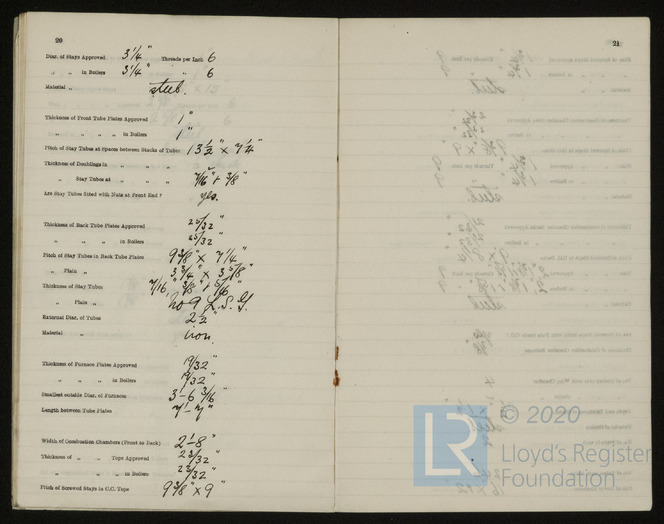 20
Diar. of Stays Approved 3 1/4" Threads per Inch 6
" " in Boilers 3 1/4" " " 6
Material " steel.
Thickness of Front Tube Plates Approved 1"
" " " " in Boilers 1"
Pitch of Stay Tubes at Spaces between Stacks of Tubes 13 1/2" × 7 1/4"
Thickness of Doublings in " " " "
" Stay Tubes at " " " 7/16" + 3/8"
Are Stay Tubes fitted with Nuts at Front End? yes.
Thickness of Back Tube Plates Approved 25/32"
" " " " in Boilers 25/32"
Pitch of Stay Tubes in Back Tube Plates 9 3/8" × 7 1/4"
" Plain " 3 3/4" × 3 5/8"
Thickness of Stay Tubes 7/16, 3/8" + 5/16"
" Plain " No 9 L.S.G.
External Diar. of Tubes 2 1/2"
Material " iron.
Thickness of Furnace Plates Approved 19/32"
" " " in Boilers 19/32"
Smallest outside Diar. of Furnaces 3'-6 3/16"
Length between Tube Plates 7'-7"
Width of Combustion Chambers (Front to Back) 2'-8"
Thickness of " " Tops Approved 23/32"
" " " " in Boilers 23/32"
Pitch of Screwed Stays in C.C. Tops 9 3/8" × 9"
21
© 2020
LR
Lloyd's Register
Foundation